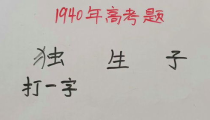 1940年高考题
独生子
打一字